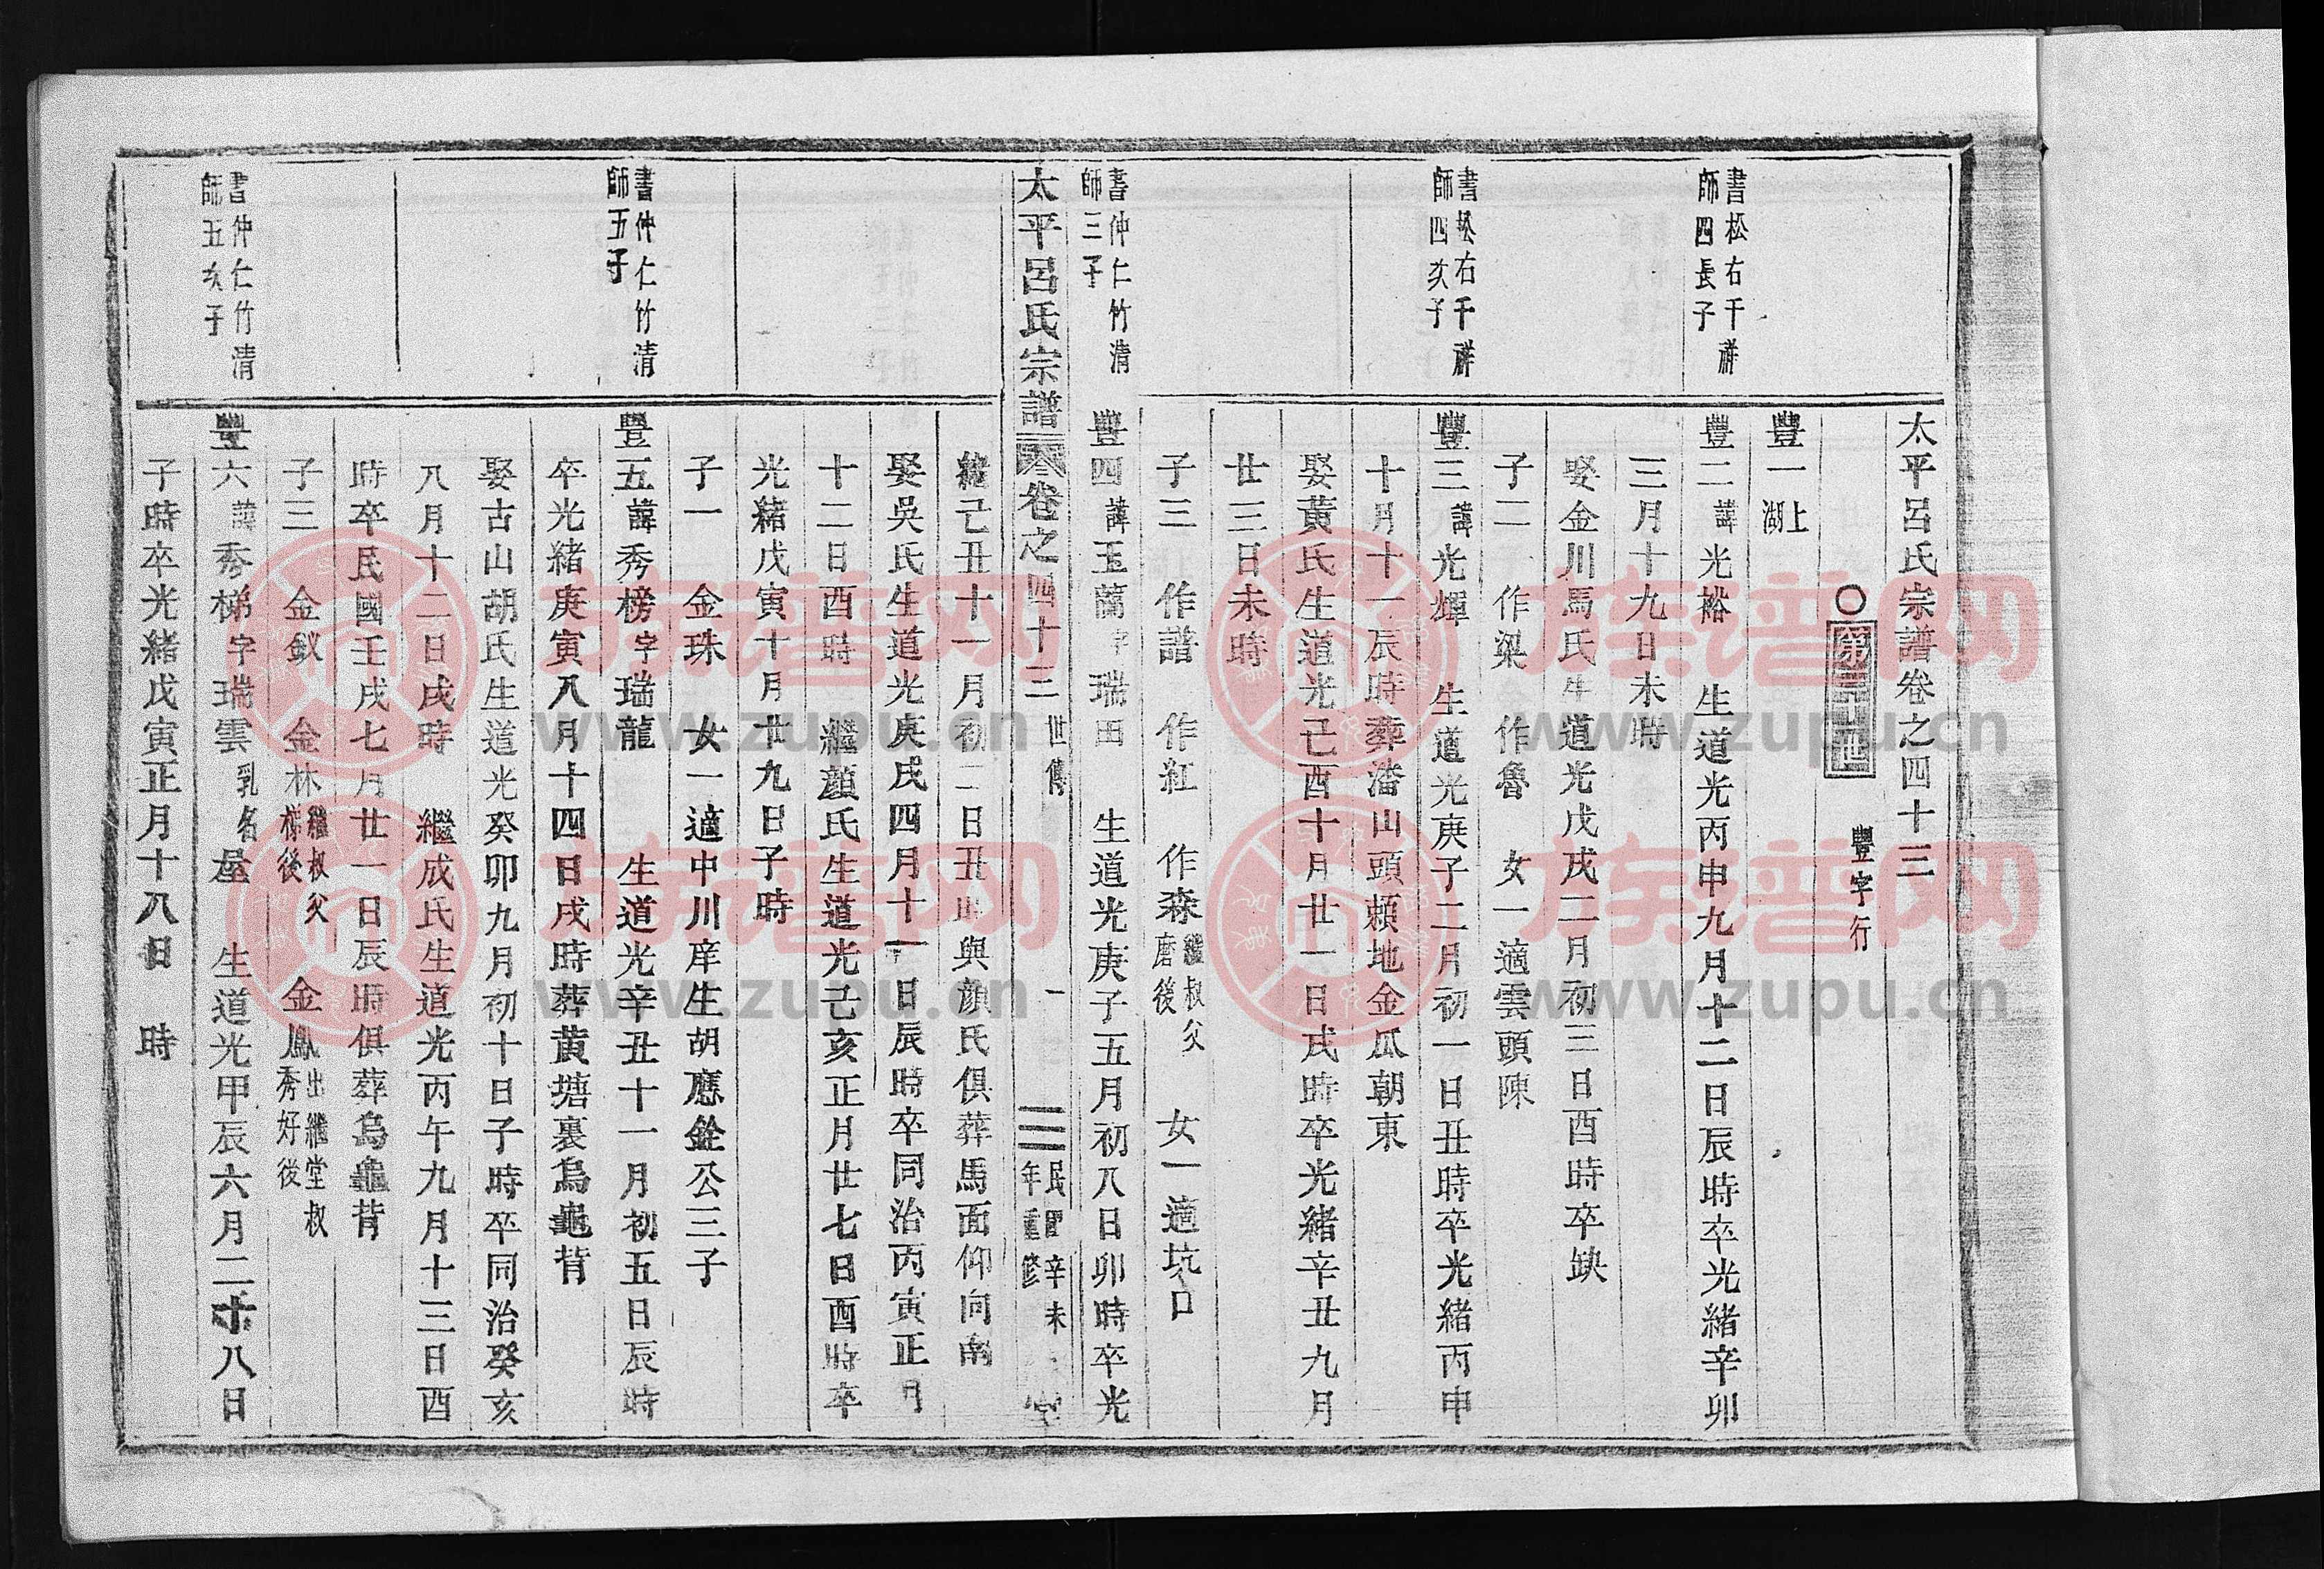 太平呂氏宗譜卷之四十三
〇第三十世 豐字行
豐一 上湖
書松右千祥師四長子
豐二 諱光裕 生道光丙申九月十二日辰時卒光緒辛卯
三月十九日未時
娶金川馬氏生道光戊戌二月初三日酉時卒缺
子二 作梁 作魯 女一適雲頭陳
書松右千祥師四次子
豐三 諱光輝 生道光庚子二月初一日丑時卒光緒丙申
十月十一辰時葬潘山頭賴地金瓜朝東
娶黃氏生道光己酉十月廿一日戌時卒光緒辛丑九月
廿三日未時
子三 作譜 作紅 作森 繼叔父磨後 女一適坑口
書仲仁竹清師三子
豐四 諱玉蘭字瑞田 生道光庚子五月初八日卯時卒光
太平呂氏宗譜 卷之四十三 世傳 一 民國辛未年重修 堂
緒己丑十一月初二日丑時與顏氏俱葬馬面仰向南
娶吳氏生道光庚戌四月十一日辰時卒同治丙寅正月
十二日酉時 繼顏氏生道光己亥正月廿七日酉時卒
光緒戊寅十月廿九日子時
子一 金珠 女一適中川庠生胡應銓公三子
書仲仁竹清師五子
豐五 諱秀榜字瑞龍 生道光辛丑十一月初五日辰時
卒光緒庚寅八月十四日戌時葬黃塘裏烏龜背
娶古山胡氏生道光癸卯九月初十日子時卒同治癸亥
八月十二日戌時 繼成氏生道光丙午九月十三日酉
時卒民國壬戌七月廿一日辰時俱葬烏龜背
子三 金釵 金林 繼叔父梯後 金鳳 出繼堂叔秀好後
書仲仁竹清師五次子
豐六 諱秀梯字瑞雲 乳名屋 生道光甲辰六月二十八日
子時卒光緒戊寅正月十八日 時
族譜网
www.zupu.cn
族譜网
www.zupu.cn
族譜网
www.zupu.cn
族譜网
www.zupu.cn